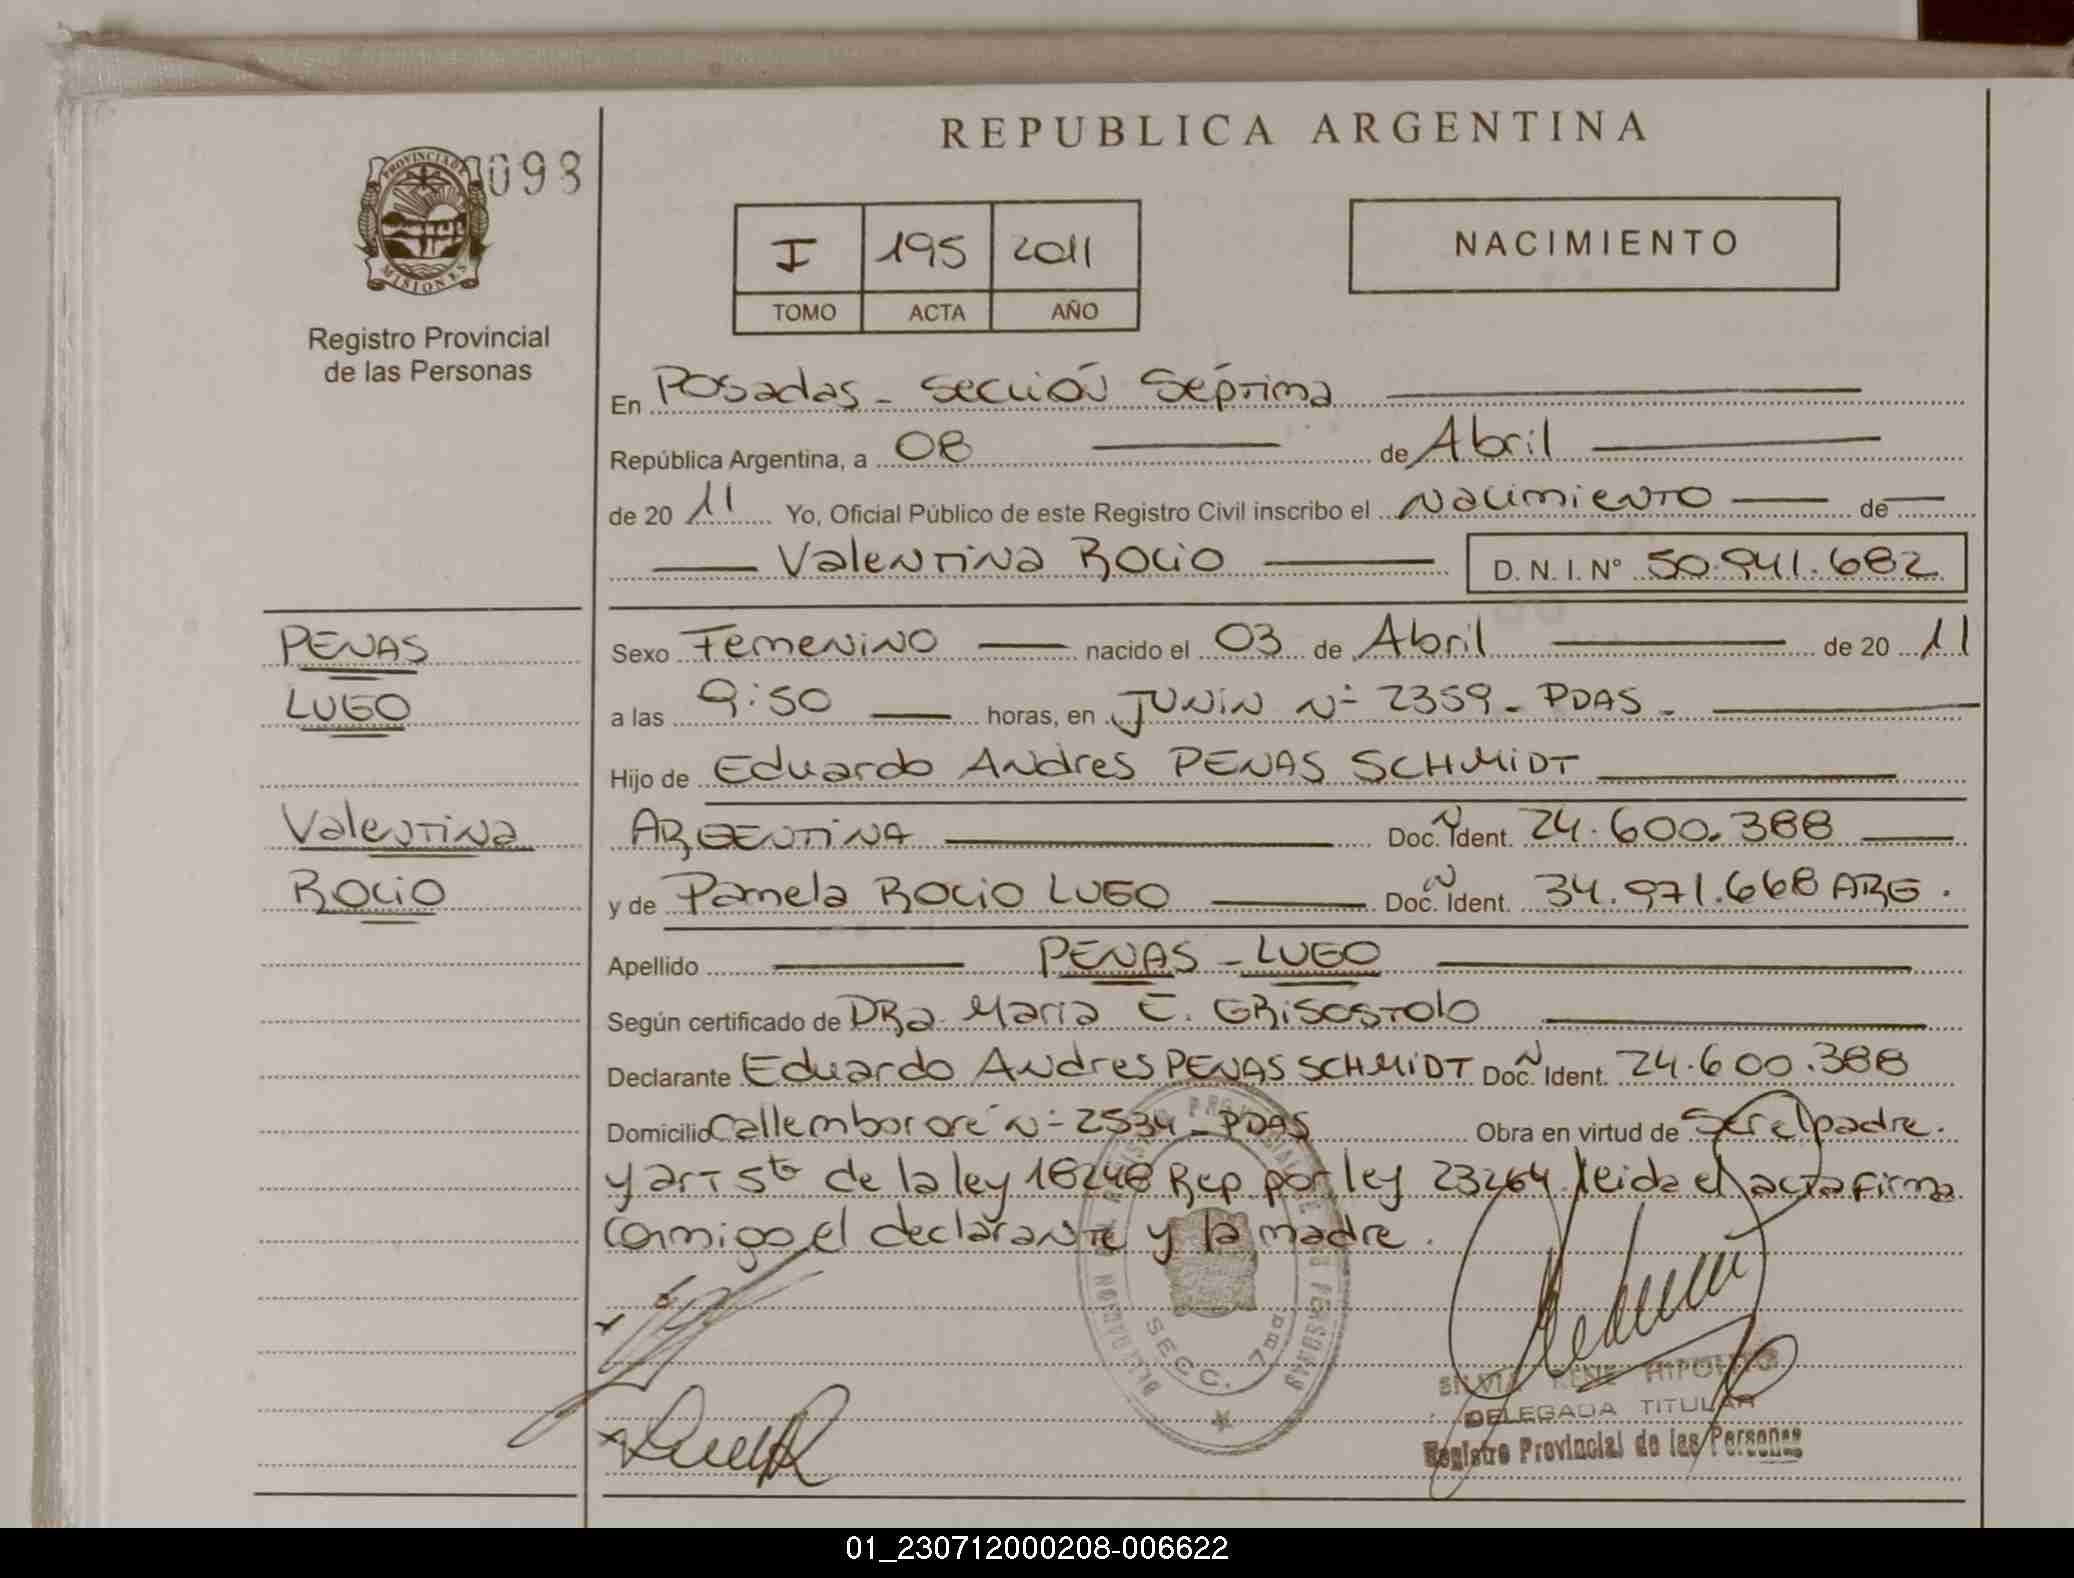 REPUBLICA ARGENTINA
PROVINCIA DE MISIONES
098
Registro Provincial
de las Personas
I 195 2011
TOMO ACTA AÑO
NACIMIENTO
En Posadas - Sección Séptima
República Argentina, a 08 de Abril
de 20 11 Yo, Oficial Público de este Registro Civil inscribo el Nacimiento de
Valentina Rocio D. N. I. N° 50.941.682
PENAS
LUGO
Valentina
Rocio
Sexo Femenino nacido el 03 de Abril de 20 11
a las 9:50 horas, en JUNIN N° 2359 - PDAS -
Hijo de Eduardo Andres PENAS SCHMIDT
ARGENTINA Doc. N Ident. 24.600.388
y de Pamela Rocio LUGO Doc. N Ident. 34.971.668 ARG.
Apellido PENAS - LUGO
Según certificado de DRa. Maria E. GRISOSTOLO
Declarante Eduardo Andres PENAS SCHMIDT Doc. N Ident. 24.600.388
Domicilio Calle mbororé N° 2534 - PDAS Obra en virtud de ser el padre.
y art 5to de la ley 18248 Rep por ley 23264 leida el acta firma
conmigo el declarante y la madre.
SECC. 7ma
SILVIA RENE HIPOLITO
DELEGADA TITULAR
Registro Provincial de las Personas
01_230712000208-006622